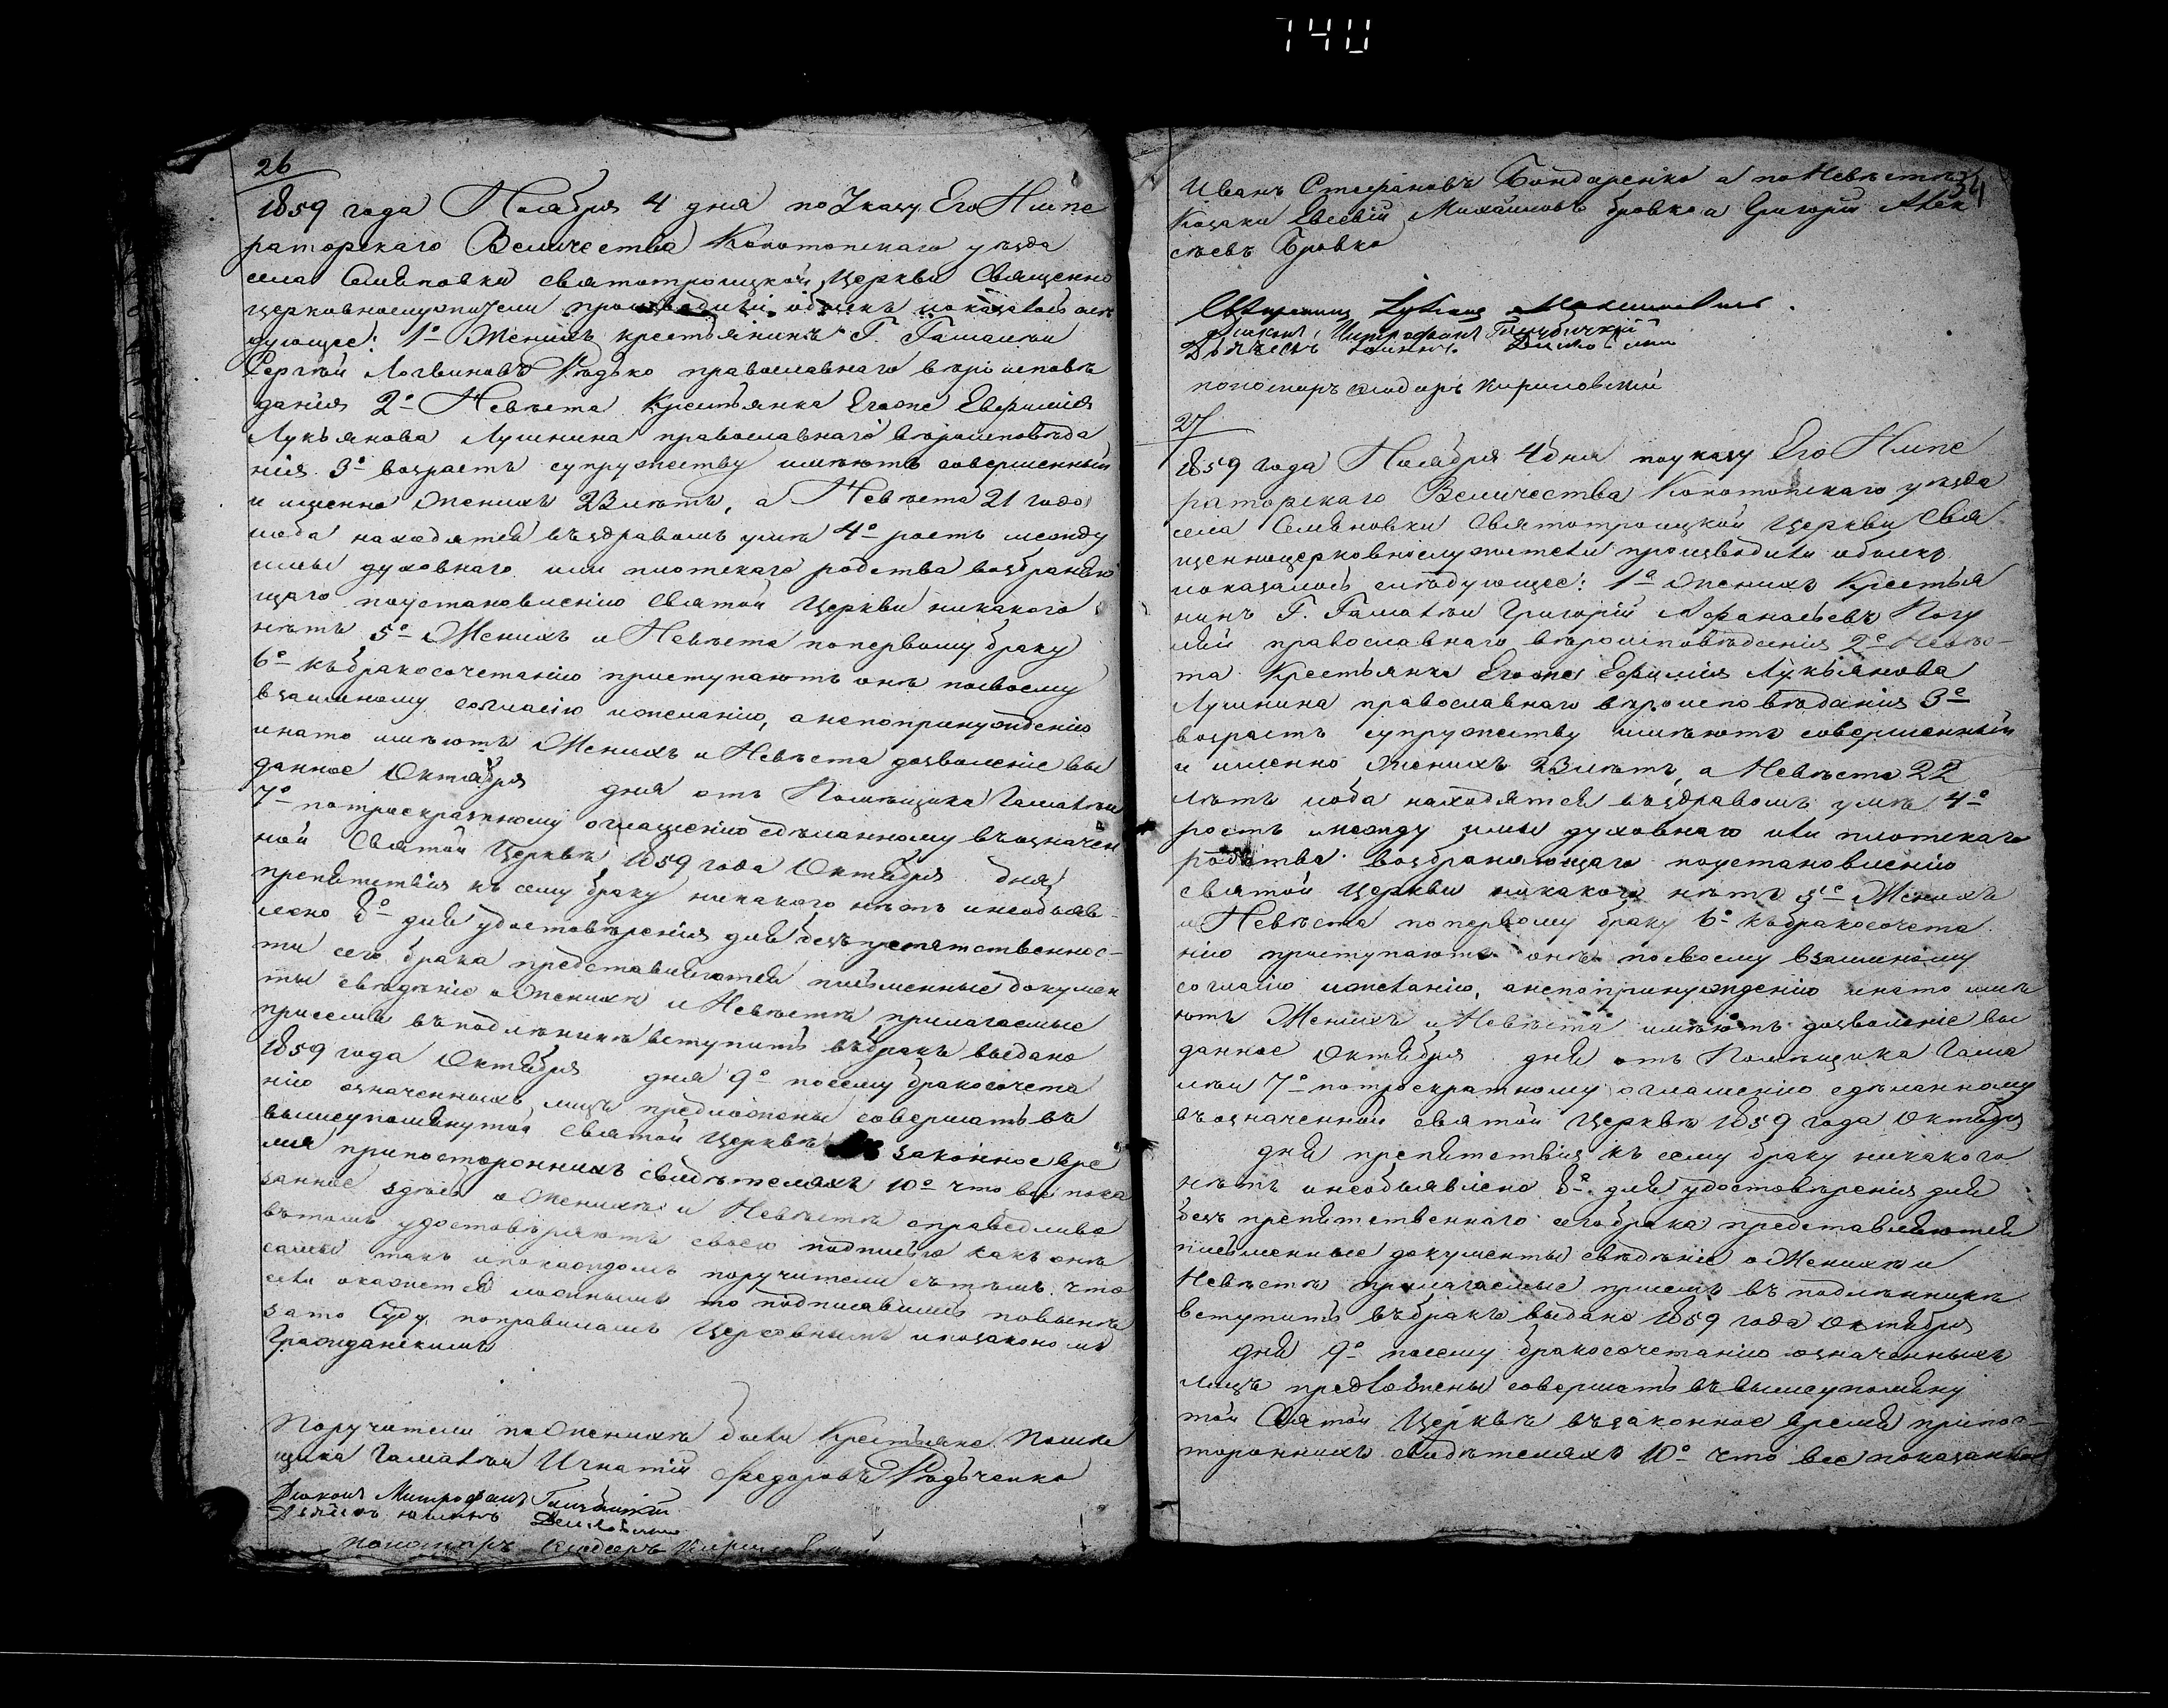 740
26
1859 года Ноября 4 дня по Указу Его Импе
раторскаго Величества Конотопскаго уѣзда
села Семяновки Святотроицкой Церкви Священно
церковнослужители производили обыскъ и оказалось слѣ
дующее: 1º Женихъ крестьянинъ Г. Гамалѣи
Сергѣй Логвиновъ Рѣдько православнаго вѣроисповѣ
данія 2º Невѣста Крестьянка Егоже Евфимія
Лукьянова Лушнина православнаго вѣроисповѣда
нія 3º возрастъ супружеству имѣютъ совершенный
и именно Женихъ 23 лѣтъ, а Невѣста 21 года
и оба находятся въ здравомъ умѣ 4º ростъ между
ими духовнаго или плотскаго родства возбраняю
щаго по установленію Святой Церкви никакого
нѣтъ 5º Женихъ и Невѣста по первому браку
6º къ бракосочетанію приступаютъ онѣ по своему
взаимному согласію и желанію, а не по принужденію
и на то имѣютъ Женихъ и Невѣста дозволеніе вы
данное Октября дня отъ Помѣщика Гамалѣи
7º по троекратному оглашенію сдѣланному въ означен
ной Святой Церквѣ 1859 года Октября дня
препятствія къ сему браку никакого нѣтъ и необъяв
лено 8º для удостовѣренія для безпрепятственнос-
ти сего брака представляются письменные докумен
ты свѣденіе о Женихѣ и Невѣстѣ прилагаемые
при семъ въ подлѣнникѣ вступить въ бракъ выдано
1859 года Октября дня 9º посему бракосочета
нію означенныхъ лицъ предложены совершать въ
вышеупомянутой Святой Церквѣ въ законное вре
мя при постороннихъ свидѣтеляхъ 10º что все пока
занное здѣсь о Женихѣ и Невѣстѣ справедливо
въ томъ удостовѣряютъ своею подписью какъ онѣ
сами такъ и по каждомъ поручители съ тѣмъ что
если окажется ложнымъ то подписавшіеся повинны
за то Суду по правиламъ Церковнымъ и по законамъ
Гражданскимъ
Поручители по Женихѣ были Крестьяне помѣ
щика Гамалѣи Игнатій Федоровъ Рѣдьченко
Діаконъ Митрофанъ
Дьячекъ
Пономарь Кириловскій
Иванъ Стефановъ Бондаренко а по Невѣстѣ
Козаки Евсевій Михайловъ Бровко и Григорій Алек
сѣевъ Бровко
Священникъ
Діаконъ Митрофанъ
Дьячекъ
пономарь Кириловскій
27
1859 года Ноября 4 дня по указу Его Импе
раторскаго Величества Конотопскаго уѣзда
села Семяновки Святотроицкой Церкви Свя
щенноцерковнослужители производили обыскъ
и оказалось слѣдующее: 1º Женихъ Крестья
нинъ Г. Гамалѣи Григорій Афанасьевъ Погу
лий православнаго вѣроисповѣденія 2º Невѣс-
та Крестьянка Егоже Ефимія Лукьянова
Лушнина православнаго вѣроисповѣданія 3º
возрастъ супружеству имѣютъ совершенный
и именно Женихъ 23 лѣтъ, а Невѣста 22
лѣтъ и оба находятся въ здравомъ умѣ 4º
ростъ между ими духовнаго или плотскаго
родства возбраняющаго по установленію
святой Церкви никакого нѣтъ 5º Женихъ
и Невѣста по первому браку 6º къ бракосочета
нію приступаютъ онѣ по своему взаимному
согласію и желанію, а не по принужденію и на то имѣ
ютъ Женихъ и Невѣста имѣютъ дозволеніе вы
данное Октября дня отъ Помѣщика Гама
лѣи 7º по троекратному оглашенію сдѣланному
въ означенной святой Церквѣ 1859 года Октября
дня препятствія къ сему браку никакого
нѣтъ и необъявлено 8º для удостовѣренія для
безъ препятственнаго сего брака представляются
письменные документы свѣдѣніе о Женихѣ и
Невѣстѣ прилагаемые при семъ въ подлѣнникѣ
вступить въ бракъ выдано 1859 года Октября
дня 9º посему бракосочетанію означенныхъ
лицъ предложены совершать въ вышеупомяну
той Святой Церквѣ въ законное время при пос-
тороннихъ свидѣтеляхъ 10º что все показанное